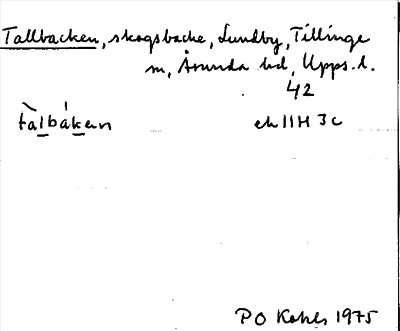 Tallbacken, skogsbacke, Lundby, Tillinge
sn, Åsunda hd, Upps. l.
42
tàl̠bák̠en ek 11H 3c
P O Kohls 1975